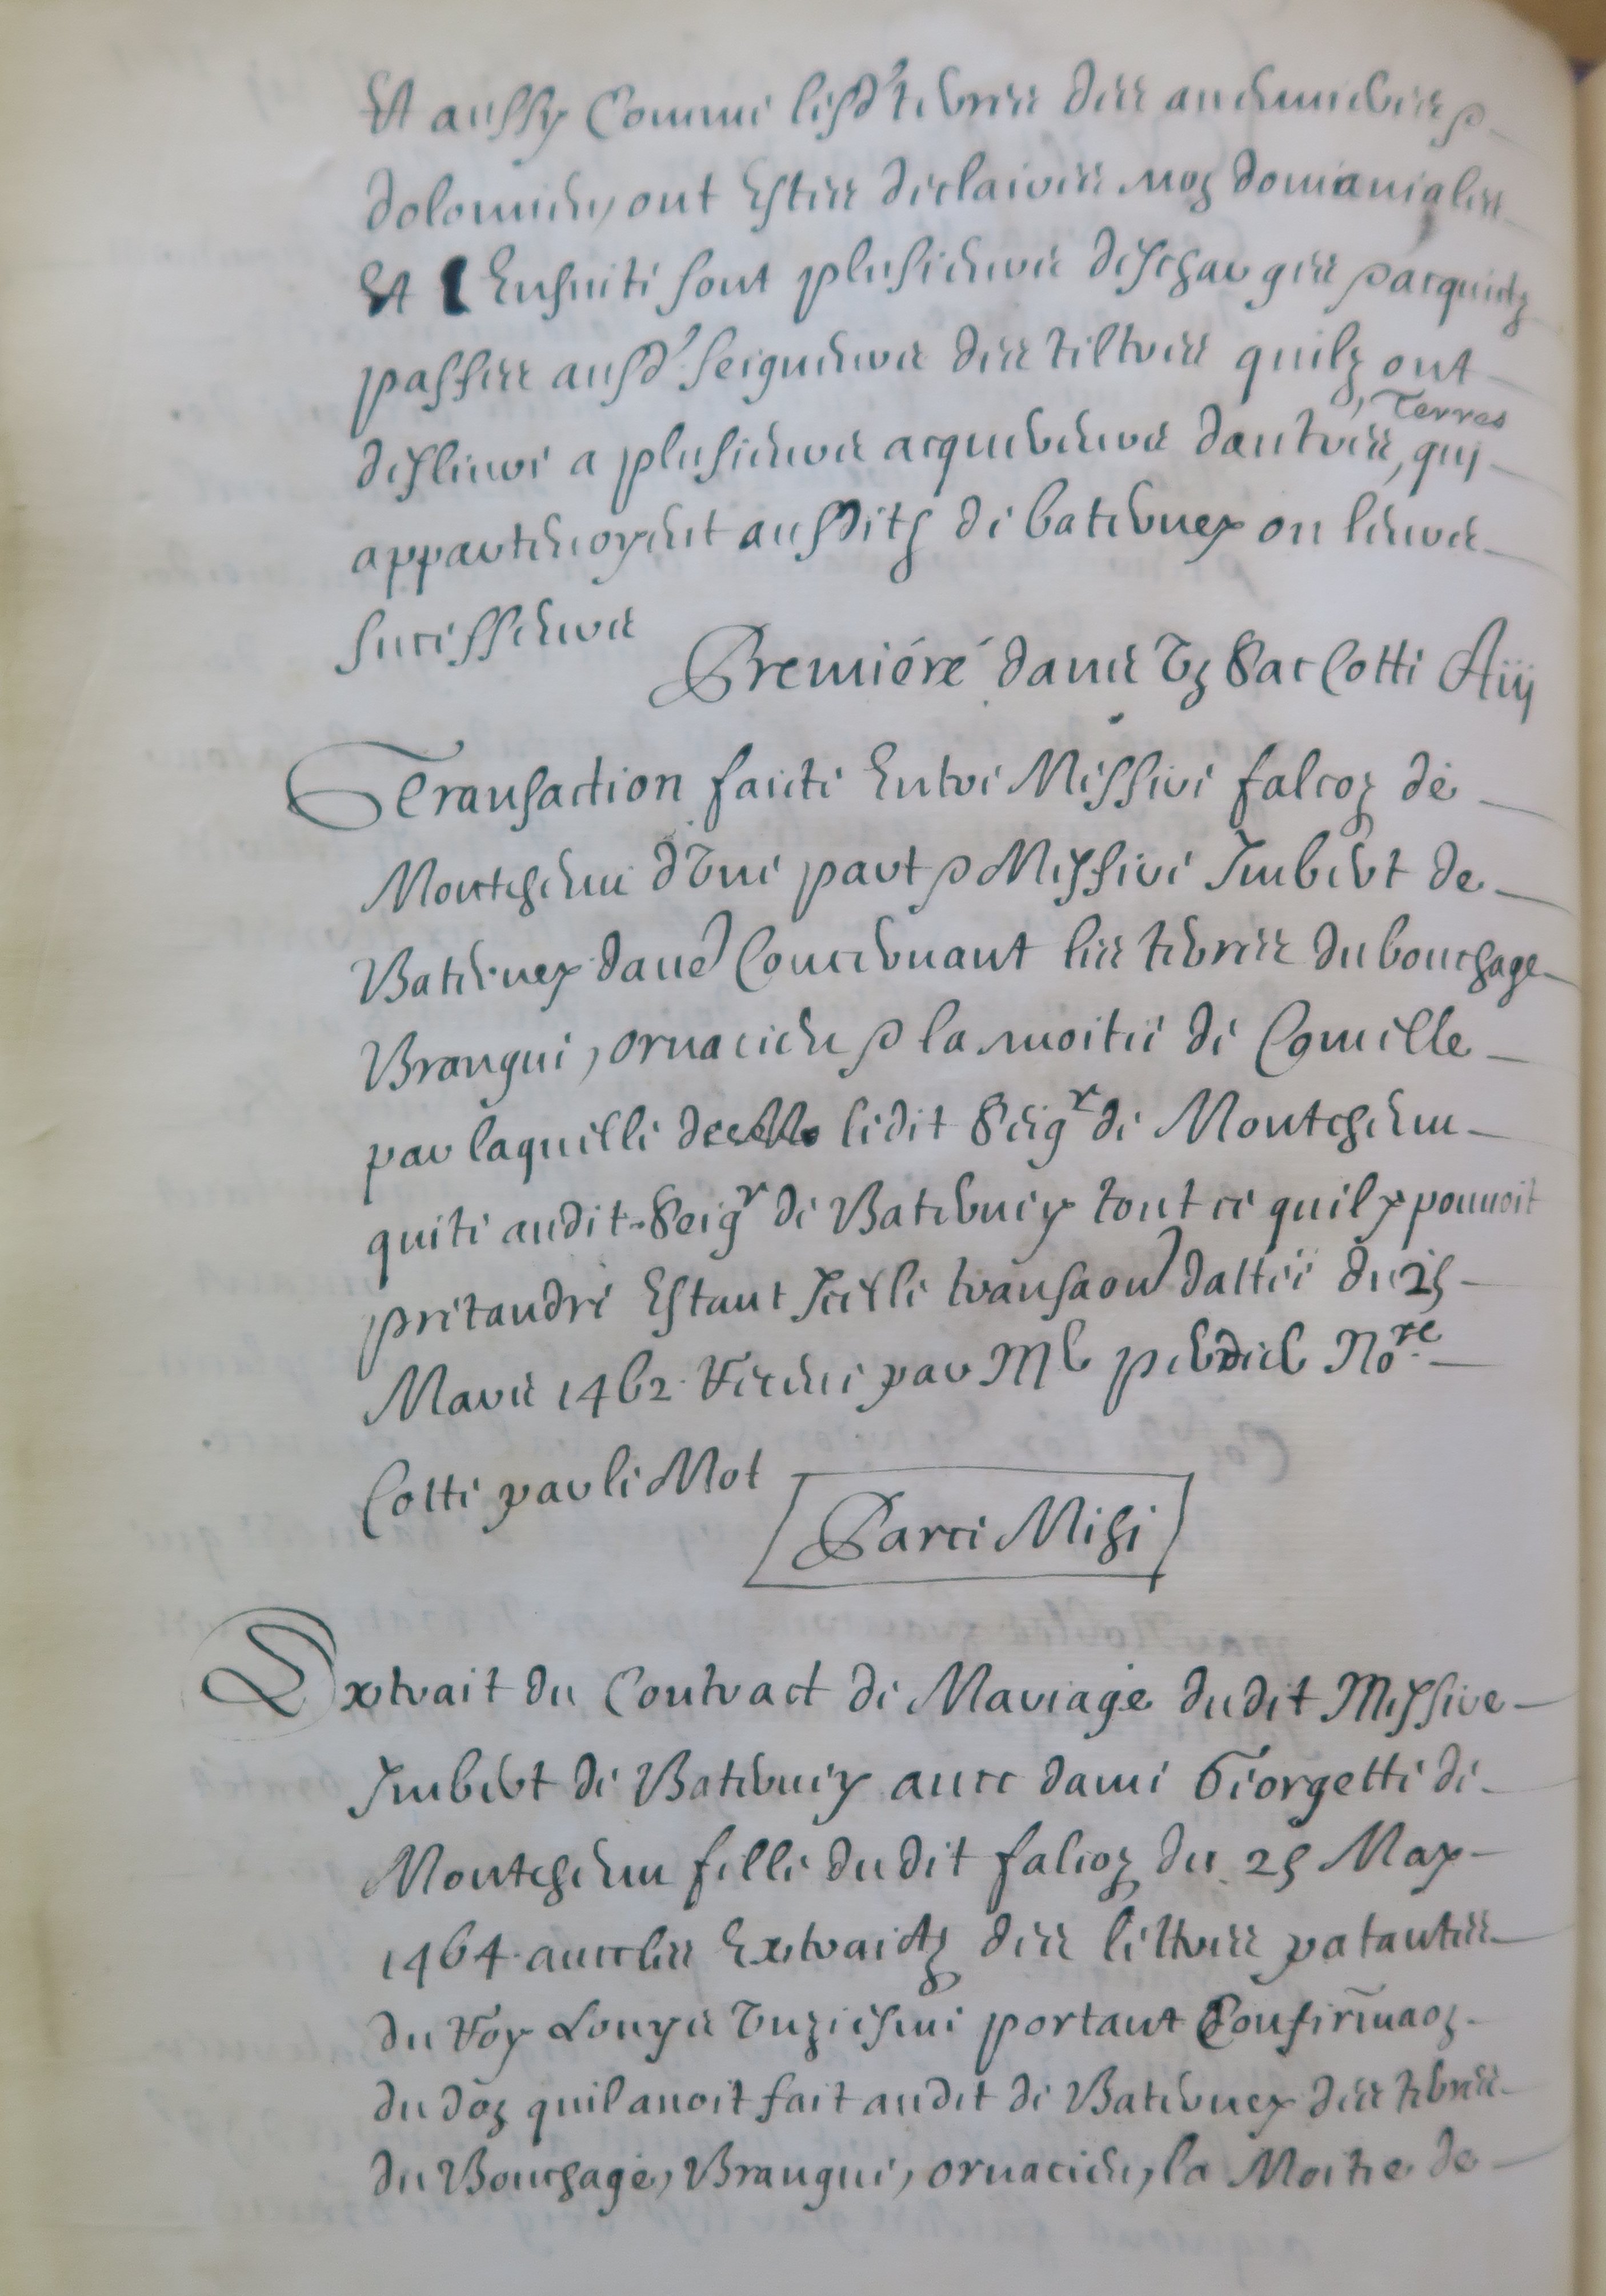 Et aussy Comme lesd' terres des auenieres &
dolomieu, ont Estes declairés nos domanialles
Et Ensuite sont plusieurs descharges & acquictz
passes ausd' seigneurs des tiltres quilz ont
desliuré a plusieurs acquereurs dautres, Terres quj
appartenoyent ausditz de baterney ou leurs
sucesseurs
Premiére dans Vz Sac Cotté Aiij
Transaction faicte Entre Messire falcoz de
Montchenu d'Vne part & Messire Jmbert de
Baternay dauê Concernant les terres du bouchage
Brangue, ornacieu & la moitié de Comelle
par laquelle ledit Seigr de Montchenu
quite audit Seigr de Baterney tout ce quil y pouuoit
pretandre Estant Jcelle transaoñ dattée du 25
Mars 1462 Receue par Me perdier Nore
Cotté par le Mot
Parce Mihi
Extrait du Contract de Mariage dudit Messire
Jmbert de Baterney auec dame Georgette de
Montchenu fille dudit falcoz du 25 May
1464 auec les Extraictz des lettres patantes
du Roy Louys Vnziesme portant Confirmaoz
du doz quil auoit fait audit de Baterney des terres
du Bouchage, Brangue, ornacieu, la Moitie de